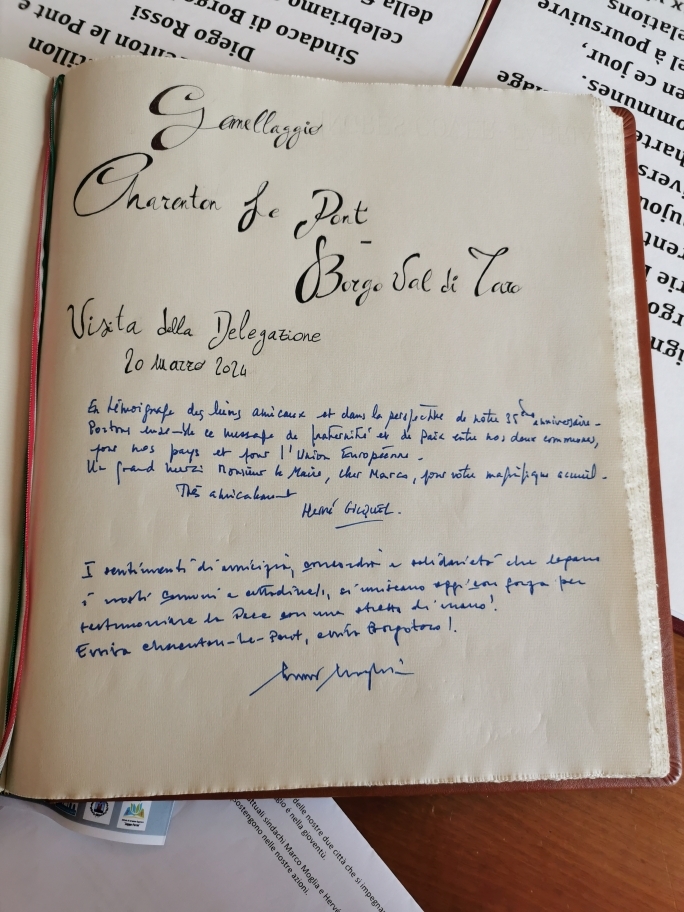 Gemellaggio
Charenton Le Pont
-
Borgo Val di Taro
Visita della Delegazione
20 Marzo 2024
En témoignage des liens amicaux et dans la perspective de notre 35ème anniversaire -
Portons ensemble ce message de fraternité et de Paix entre nos deux communes,
pour nos pays et pour l'Union Européenne -
Un grand merci Monsieur le Maire, cher Marco, pour votre magnifique accueil -
Très amicalement
Hervé GICQUEL.
I sentimenti di amicizia, concordia e solidarietà che legano
i nostri comuni e cittadine/i, ci uniscano oggi con forza per
testimoniare la Pace con una stretta di mano!
Evviva Charenton-le-Pont, evviva Borgotaro!
Diego Rossi
Sindaco di Borgo
celebriamo
della
enton le Pont e
tillon
elations
el à poursuivre
en ce jour,
ommunes.
delle nostre due città che si impegna
gio è nella gioventù.
attuali sindachi Marco Moglia e Hervé
sostengono nelle nostre azioni.